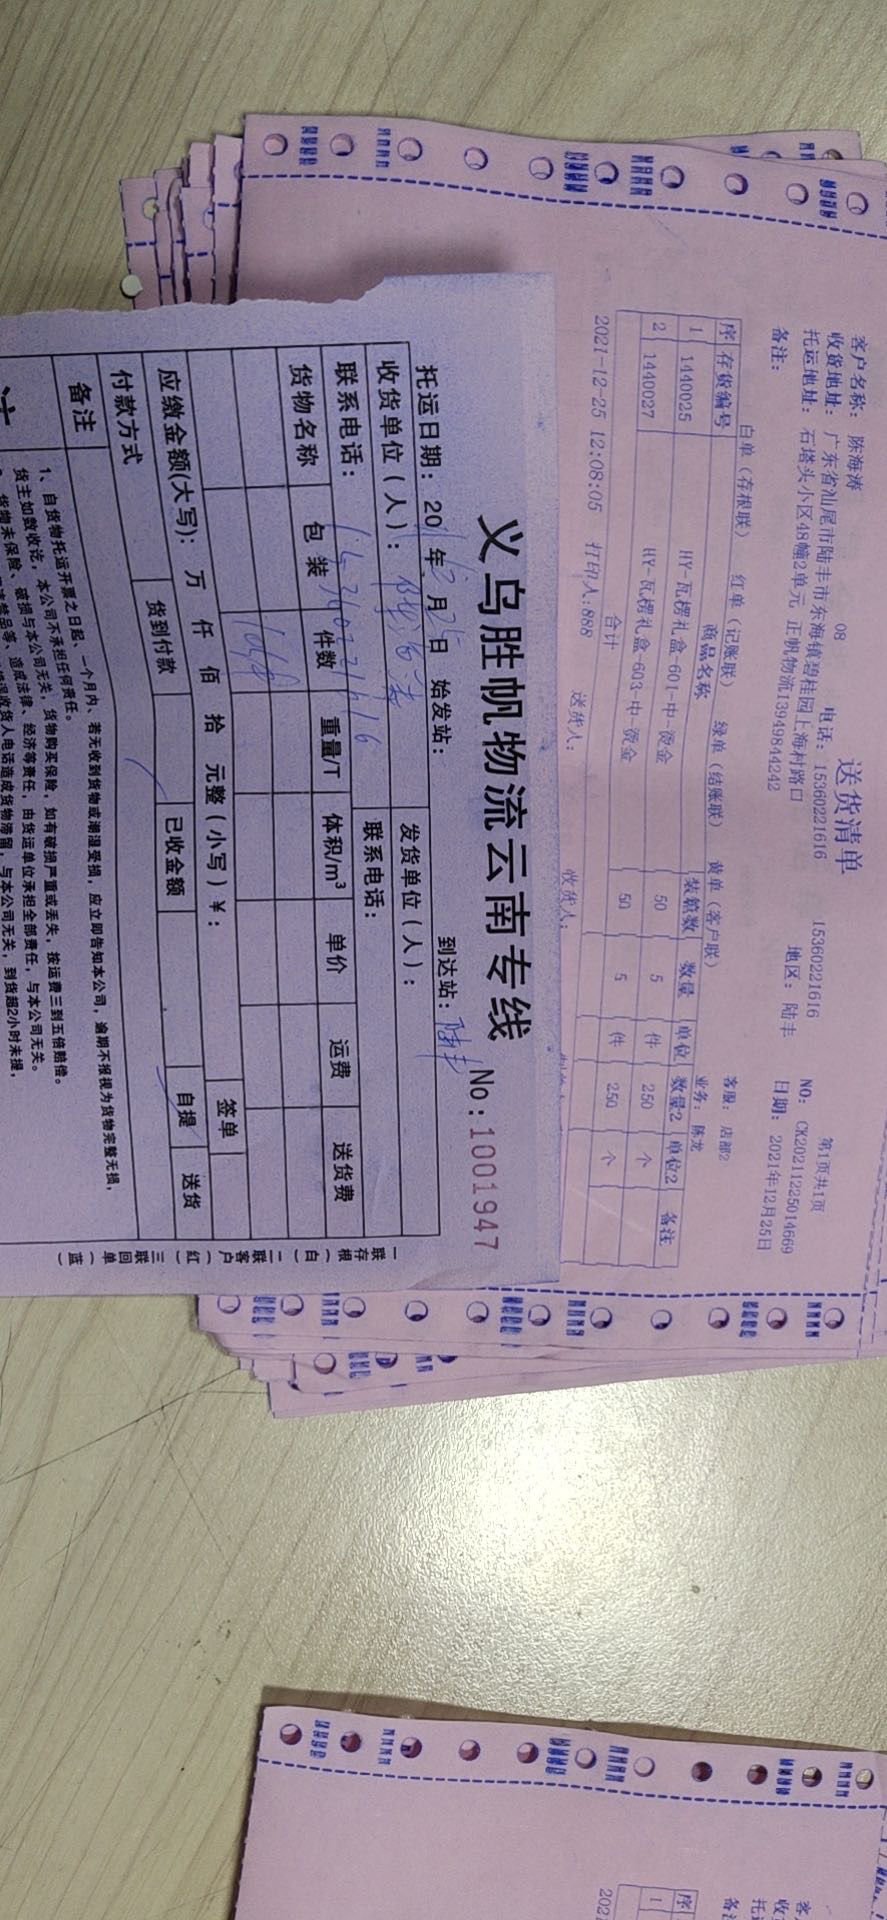 送货清单
第1页共1页
客户名称： 陈海涛 08 电话：15360221616 15360221616 NO：CK20211225014669
收货地址：广东省汕尾市陆丰市东海镇碧桂园上海村路口 地区：陆丰 日期：2021年12月25日
托运地址：石塔头小区48幢2单元 正帆物流13949844242
备注： 客服：店部2
白单（存根联） 红单（记账联） 绿单（结账联） 黄单（客户联） 业务：陈龙
序 存货编号 商品名称 装箱数 数量 单位 数量2 单位2 备注
1 1440025 HY-瓦楞礼盒-601-中-烫金 50 5 件 250 个
2 1440027 HY-瓦楞礼盒-603-中-烫金 50 5 件 250 个
合计
2021-12-25 12:08:05 打印人:888 送货人： 收货人：
义乌胜帆物流云南专线 No:1001947
托运日期：20 年12月25日 始发站： 到达站：陆丰
收货单位（人）：陈海涛 发货单位（人）：
联系电话：15360221616 联系电话：
货物名称 包装 件数 重量/T 体积/m³ 单价 运费 送货费
10件
应缴金额(大写)： 万 仟 佰 拾 元整（小写）￥： 签单
付款方式 货到付款 已收金额 自提 送货
备注
1、自货物托运开票之日起、一个月内、若无收到货物或潮湿受损，应立即告知本公司，逾期不报视为货物完整无损，
货主如数收讫，本公司不承担任何责任。
货物未保险、破损与本公司无关，货物购买保险，如有破损严重或丢失，按运费三到五倍赔偿。
造成法律、经济等责任，由货运单位承担全部责任，与本公司无关。
收货人电话造成货物滞留，与本公司无关，到货超2小时未提，
一联存根（白）二联客户（红）三联回单（蓝）
序
1